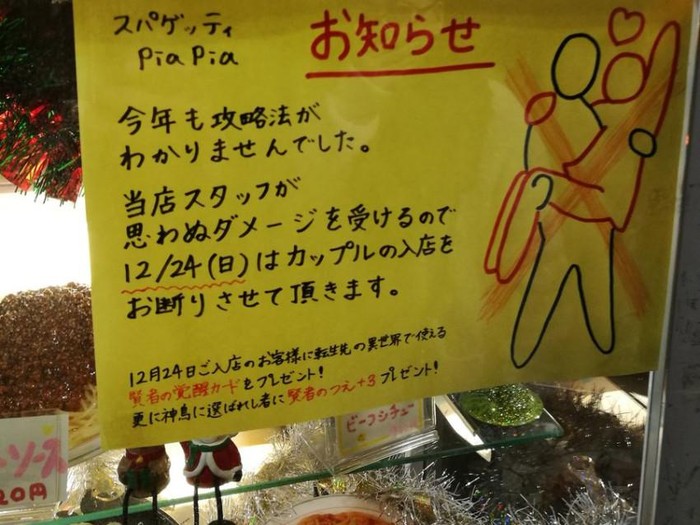 スパゲッティ
PiaPia
お知らせ
今年も攻略法が
わかりませんでした。
当店スタッフが
思わぬダメージを受けるので
12/24(日)はカップルの入店を
お断りさせて頂きます。
12月24日ご入店のお客様に転生先の異世界で使える
賢者の覚醒カードをプレゼント!
更に神鳥に選ばれし者に賢者のつえ+3プレゼント!
ビーフシチュー
ーソース
20円